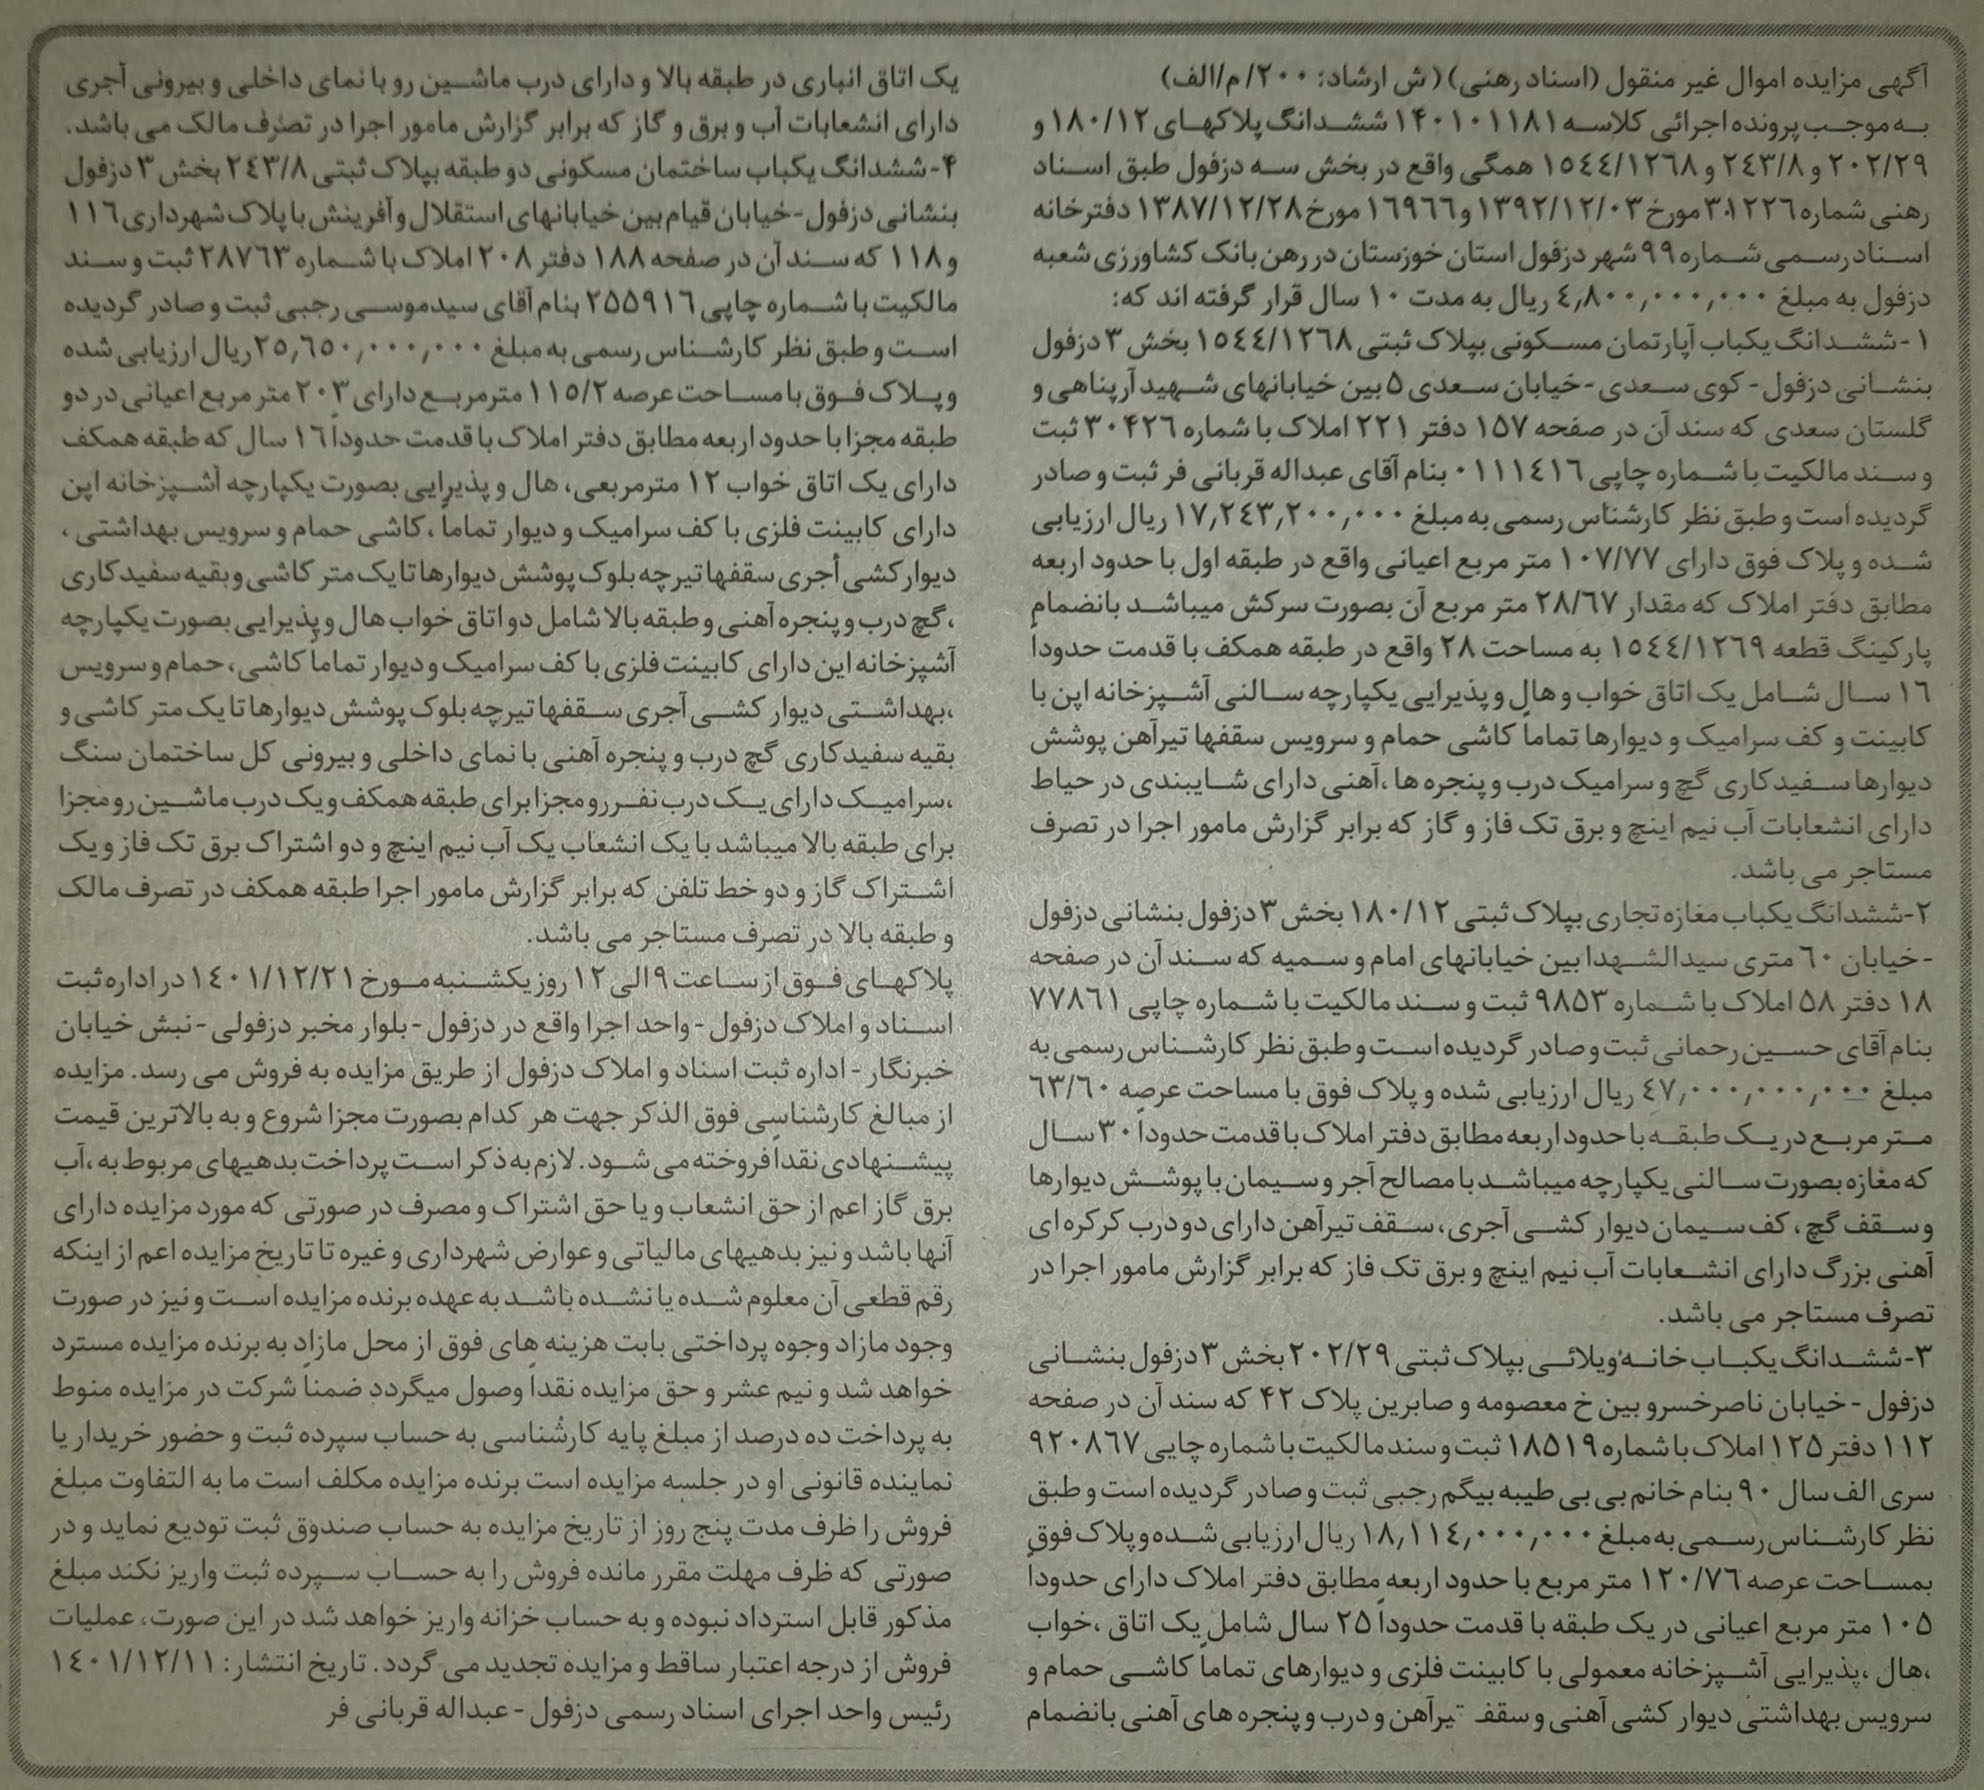 آگهی مزایده اموال غیر منقول (اسناد رهنی) ( ش ارشاد: ۲۰۰/ م/الف)
به موجب پرونده اجرائی کلاسه ۱۴۰۱۰۱۱۸۱ ششدانگ پلاکهای ۱۸۰/۱۲ و
۲۰۲/۲۹ و ۲۴۳/۸ و ۱۵٤٤/۱۲٦۸ همگی واقع در بخش سه دزفول طبق اسناد
رهنی شماره ۳۰۱۲۲٦ مورخ ۱۳۹۲/۱۲/۰۳ و ۱٦۹٦٦ مورخ ۱۳۸۷/۱۲/۲۸ دفترخانه
اسناد رسمی شماره ۹۹ شهر دزفول استان خوزستان در رهن بانک کشاورزی شعبه
دزفول به مبلغ ٤,۸۰۰,۰۰۰,۰۰۰ ریال به مدت ۱۰ سال قرار گرفته اند که:
۱- ششدانگ یکباب آپارتمان مسکونی بپلاک ثبتی ۱۵٤٤/۱۲٦۸ بخش ۳ دزفول
بنشانی دزفول - کوی سعدی - خیابان سعدی ۵ بین خیابانهای شهید آرپناهی و
گلستان سعدی که سند آن در صفحه ۱۵۷ دفتر ۲۲۱ املاک با شماره ۳۰۴۲٦ ثبت
و سند مالکیت با شماره چاپی ۰۱۱۱٤۱٦ بنام آقای عبداله قربانی فر ثبت و صادر
گردیده است و طبق نظر کارشناس رسمی به مبلغ ۱۷,۲٤۳,۲۰۰,۰۰۰ ریال ارزیابی
شده و پلاک فوق دارای ۱۰۷/۷۷ متر مربع اعیانی واقع در طبقه اول با حدود اربعه
مطابق دفتر املاک که مقدار ۲۸/٦۷ متر مربع آن بصورت سرکش میباشد بانضمام
پارکینگ قطعه ۱۵٤٤/۱۲٦۹ به مساحت ۲۸ واقع در طبقه همکف با قدمت حدوداً
۱٦ سال شامل یک اتاق خواب و هال و پذیرایی یکپارچه سالنی آشپزخانه اپن با
کابینت و کف سرامیک و دیوارها تماماً کاشی حمام و سرویس سقفها تیرآهن پوشش
دیوارها سفیدکاری گچ و سرامیک درب و پنجره ها ،آهنی دارای شایبندی در حیاط
دارای انشعابات آب نیم اینچ و برق تک فاز و گاز که برابر گزارش مامور اجرا در تصرف
مستاجر می باشد.
۲-ششدانگ یکباب مغازه تجاری بپلاک ثبتی ۱۸۰/۱۲ بخش ۳ دزفول بنشانی دزفول
- خیابان ٦۰ متری سیدالشهدا بین خیابانهای امام و سمیه که سند آن در صفحه
۱۸ دفتر ۵۸ املاک با شماره ۹۸۵۳ ثبت و سند مالکیت با شماره چاپی ۷۷۸٦۱
بنام آقای حسین رحمانی ثبت و صادر گردیده است و طبق نظر کارشناس رسمی به
مبلغ ٤۷,۰۰۰,۰۰۰,۰۰۰ ریال ارزیابی شده و پلاک فوق با مساحت عرصه ٦۳/٦۰
متر مربع در یک طبقه با حدود اربعه مطابق دفتر املاک با قدمت حدوداً ۳۰ سال
که مغازه بصورت سالنی یکپارچه میباشد با مصالح آجر و سیمان با پوشش دیوارها
و سقف گچ ، کف سیمان دیوار کشی آجری، سقف تیرآهن دارای دو درب کرکره ای
آهنی بزرگ دارای انشعابات آب نیم اینچ و برق تک فاز که برابر گزارش مامور اجرا در
تصرف مستاجر می باشد.
۳-ششدانگ یکباب خانه ویلائی بپلاک ثبتی ۲۰۲/۲۹ بخش ۳ دزفول بنشانی
دزفول - خیابان ناصرخسرو بین خ معصومه و صابرین پلاک ۴۲ که سند آن در صفحه
۱۱۲ دفتر ۱۲۵ املاک با شماره ۱۸۵۱۹ ثبت و سند مالکیت با شماره چاپی ۹۲۰۸٦۷
سری الف سال ۹۰ بنام خانم بی بی طیبه بیگم رجبی ثبت و صادر گردیده است و طبق
نظر کارشناس رسمی به مبلغ ۱۸,۱۱٤,۰۰۰,۰۰۰ ریال ارزیابی شده و پلاک فوق
بمساحت عرصه ۱۲۰/۷٦ متر مربع با حدود اربعه مطابق دفتر املاک دارای حدوداً
۱۰۵ متر مربع اعیانی در یک طبقه با قدمت حدوداً ۲۵ سال شامل یک اتاق ،خواب
،هال ،پذیرایی آشپزخانه معمولی با کابینت فلزی و دیوارهای تماماً کاشی حمام و
سرویس بهداشتی دیوار کشی آهنی و سقف تیرآهن و درب و پنجره های آهنی بانضمام
یک اتاق انباری در طبقه بالا و دارای درب ماشین رو با نمای داخلی و بیرونی آجری
دارای انشعابات آب و برق و گاز که برابر گزارش مامور اجرا در تصرف مالک می باشد.
۴- ششدانگ یکباب ساختمان مسکونی دو طبقه بپلاک ثبتی ۲٤۳/۸ بخش ۳ دزفول
بنشانی دزفول - خیابان قیام بین خیابانهای استقلال و آفرینش با پلاک شهرداری ۱۱٦
و ۱۱۸ که سند آن در صفحه ۱۸۸ دفتر ۲۰۸ املاک با شماره ۲۸۷٦۳ ثبت و سند
مالکیت با شماره چاپی ۲۵۵۹۱٦ بنام آقای سیدموسی رجبی ثبت و صادر گردیده
است و طبق نظر کارشناس رسمی به مبلغ ۲۵,٦۵۰,۰۰۰,۰۰۰ ریال ارزیابی شده
و پلاک فوق با مساحت عرصه ۱۱۵/۲ مترمربع دارای ۲۰۳ متر مربع اعیانی در دو
طبقه مجزا با حدود اربعه مطابق دفتر املاک با قدمت حدوداً ۱٦ سال که طبقه همکف
دارای یک اتاق خواب ۱۲ مترمربعی، هال و پذیرایی بصورت یکپارچه آشپزخانه اپن
دارای کابینت فلزی با کف سرامیک و دیوار تماماً ،کاشی حمام و سرویس بهداشتی ،
دیوار کشی آجری سقفها تیرچه بلوک پوشش دیوارها تا یک متر کاشی و بقیه سفیدکاری
،گچ درب و پنجره آهنی و طبقه بالا شامل دو اتاق خواب هال و پذیرایی بصورت یکپارچه
آشپزخانه این دارای کابینت فلزی با کف سرامیک و دیوار تماماً کاشی، حمام و سرویس
،بهداشتی دیوار کشی آجری سقفها تیرچه بلوک پوشش دیوارها تا یک متر کاشی و
بقیه سفیدکاری گچ درب و پنجره آهنی با نمای داخلی و بیرونی کل ساختمان سنگ
،سرامیک دارای یک درب نفررو مجزا برای طبقه همکف و یک درب ماشین رو مجزا
برای طبقه بالا میباشد با یک انشعاب یک آب نیم اینچ و دو اشتراک برق تک فاز و یک
اشتراک گاز و دو خط تلفن که برابر گزارش مامور اجرا طبقه همکف در تصرف مالک
و طبقه بالا در تصرف مستاجر می باشد.
پلاکهای فوق از ساعت ۹ الی ۱۲ روز یکشنبه مورخ ۱٤۰۱/۱۲/۲۱ در اداره ثبت
اسناد و املاک دزفول - واحد اجرا واقع در دزفول - بلوار مخبر دزفولی - نبش خیابان
خبرنگار - اداره ثبت اسناد و املاک دزفول از طریق مزایده به فروش می رسد. مزایده
از مبالغ کارشناسی فوق الذکر جهت هر کدام بصورت مجزا شروع و به بالاترین قیمت
پیشنهادی نقداً فروخته می شود. لازم به ذکر است پرداخت بدهیهای مربوط به ،آب
برق گاز اعم از حق انشعاب و یا حق اشتراک و مصرف در صورتی که مورد مزایده دارای
آنها باشد و نیز بدهیهای مالیاتی و عوارض شهرداری و غیره تا تاریخ مزایده اعم از اینکه
رقم قطعی آن معلوم شده یا نشده باشد به عهده برنده مزایده است و نیز در صورت
وجود مازاد وجوه پرداختی بابت هزینه های فوق از محل مازاد به برنده مزایده مسترد
خواهد شد و نیم عشر و حق مزایده نقداً وصول میگردد ضمناً شرکت در مزایده منوط
به پرداخت ده درصد از مبلغ پایه کارشناسی به حساب سپرده ثبت و حضور خریدار یا
نماینده قانونی او در جلسه مزایده است برنده مزایده مکلف است ما به التفاوت مبلغ
فروش را ظرف مدت پنج روز از تاریخ مزایده به حساب صندوق ثبت تودیع نماید و در
صورتی که ظرف مهلت مقرر مانده فروش را به حساب سپرده ثبت واریز نکند مبلغ
مذکور قابل استرداد نبوده و به حساب خزانه واریز خواهد شد در این صورت، عملیات
فروش از درجه اعتبار ساقط و مزایده تجدید می گردد. تاریخ انتشار: ۱٤۰۱/۱۲/۱۱
رئیس واحد اجرای اسناد رسمی دزفول - عبداله قربانی فر